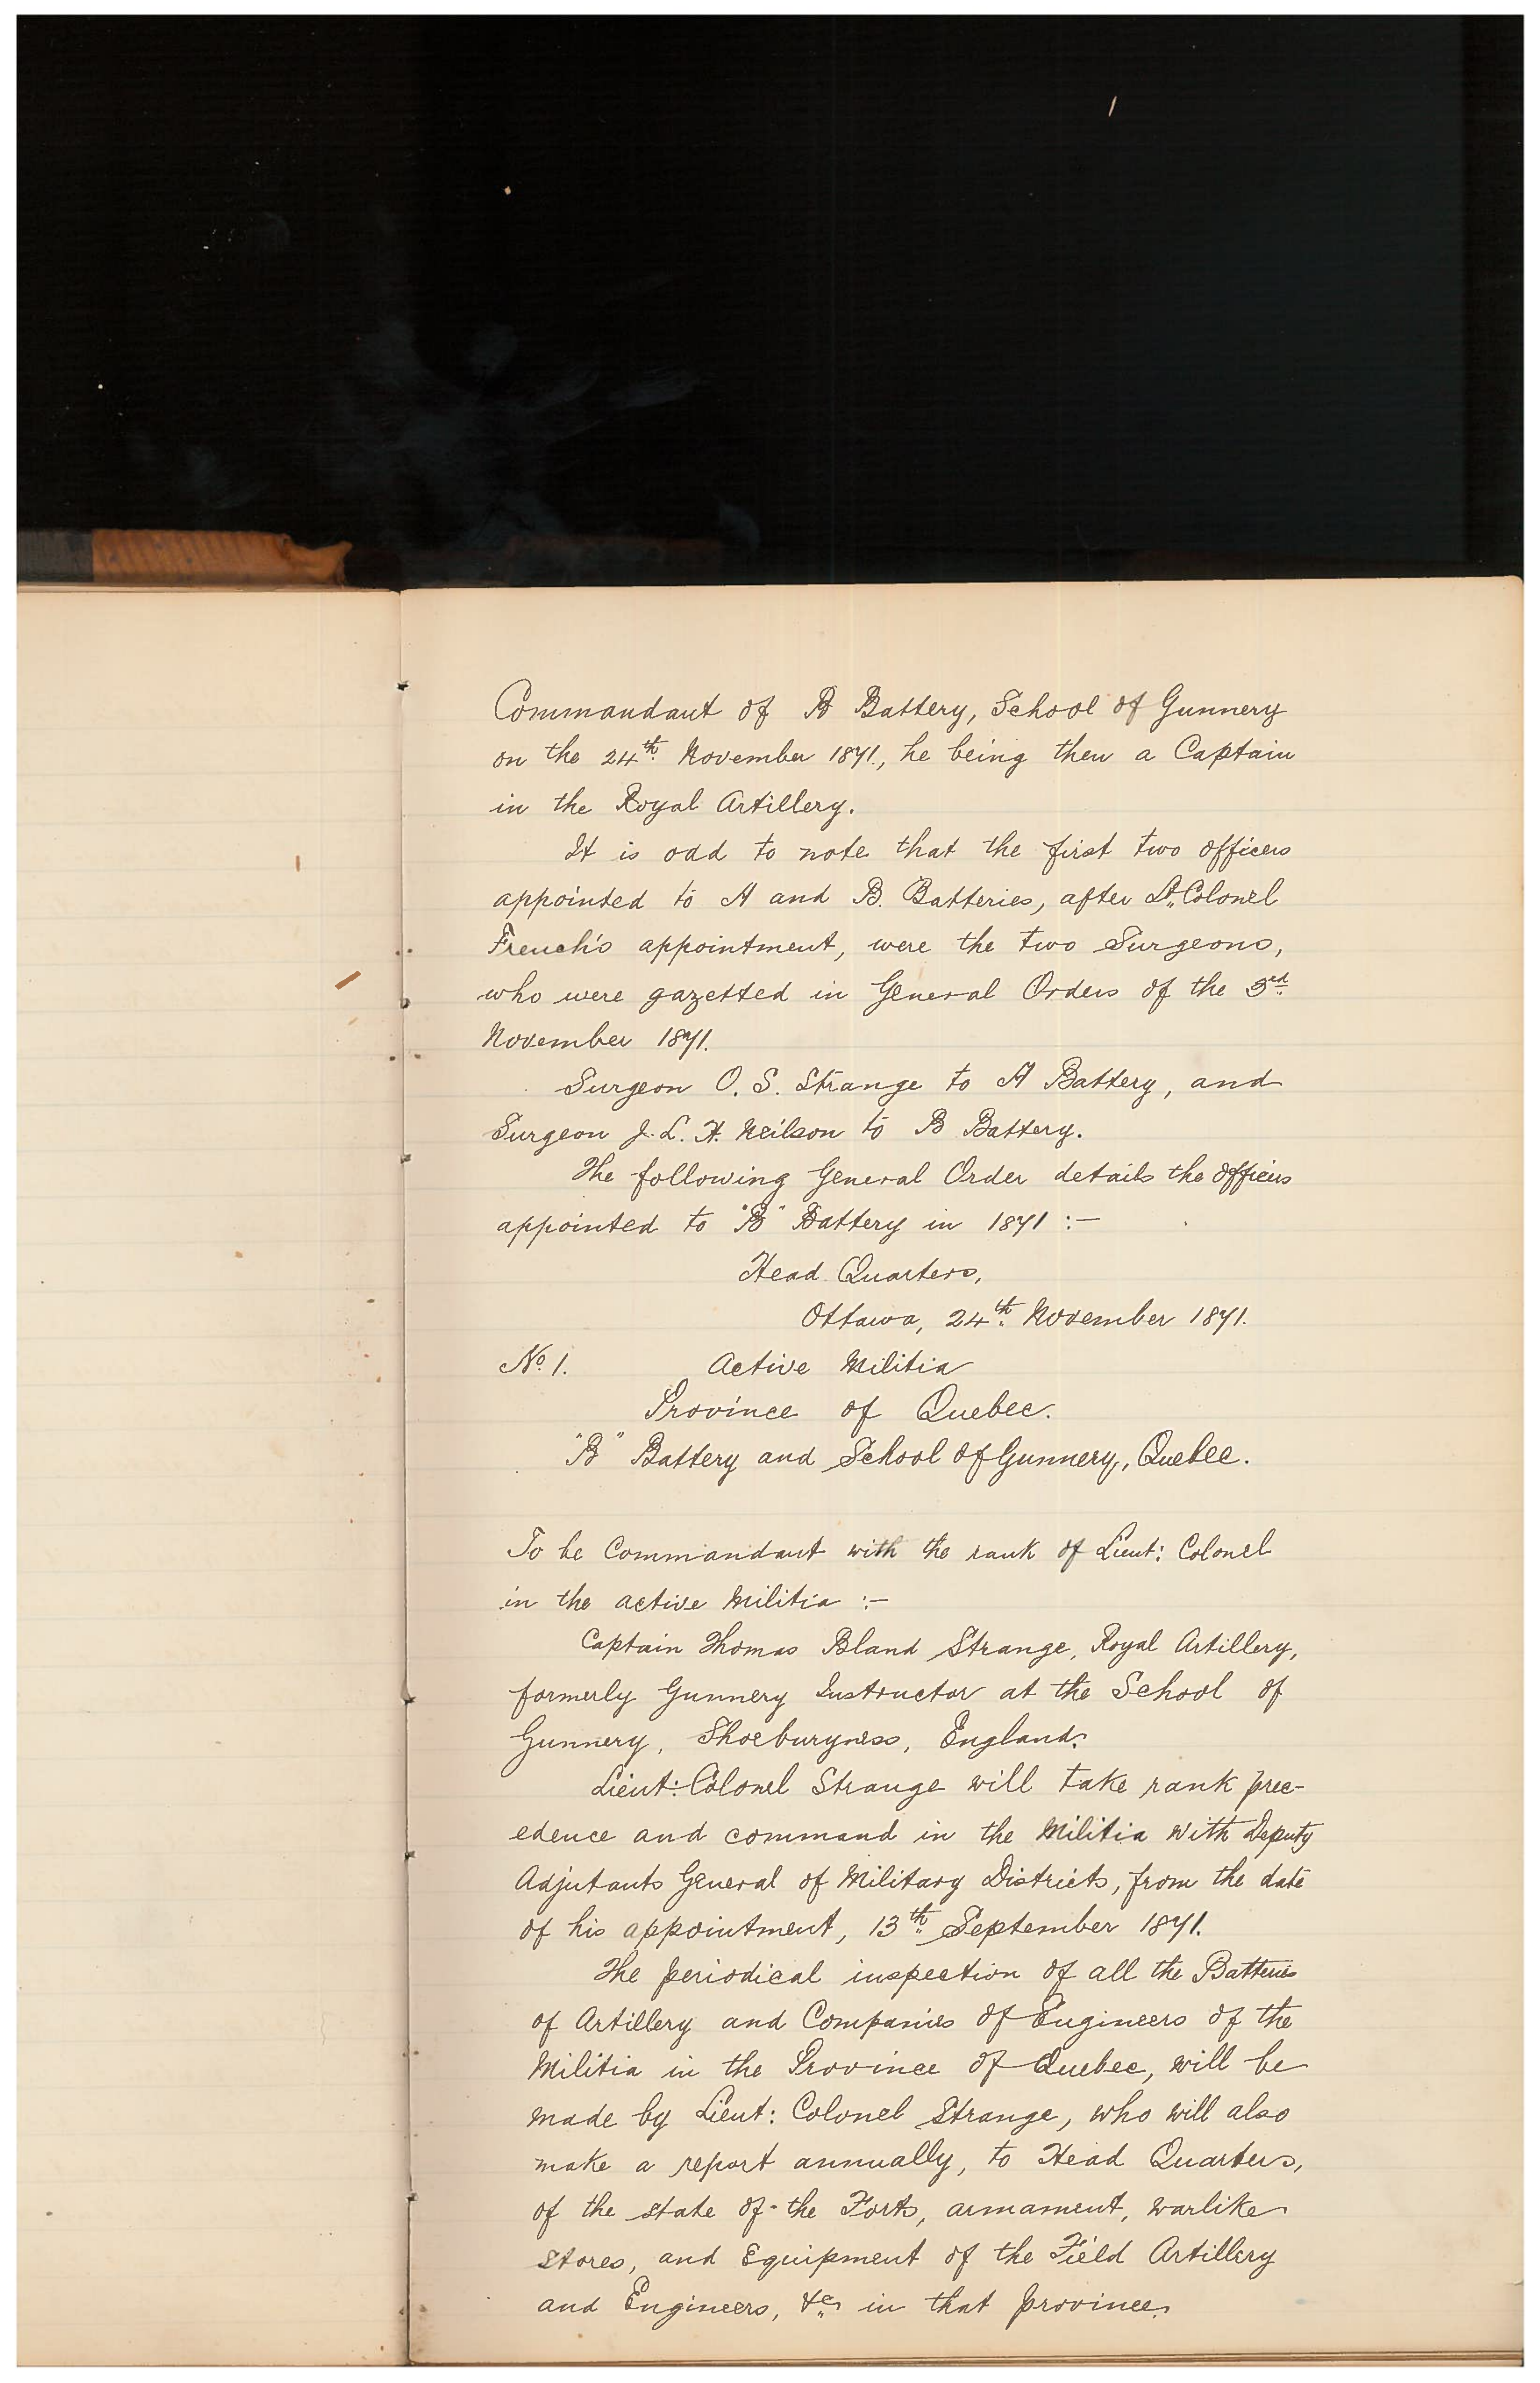 Commandant of B Battery, School of Gunnery
on the 24th November 1871, he being then a Captain
in the Royal Artillery.
It is odd to note that the first two officers
appointed to A and B. Batteries, after Lt. Colonel
French's appointment, were the two Surgeons,
who were gazetted in General Orders of the 3rd
November 1871.
Surgeon O. S. Strange to A Battery, and
Surgeon J. L. H. Neilson to B Battery.
The following General Order details the officers
appointed to "B" Battery in 1871 :—
Head Quarters,
Ottawa, 24th November 1871.
No. 1. Active Militia
Province of Quebec.
"B" Battery and School of Gunnery, Quebec.
To be Commandant with the rank of Lieut: Colonel
in the active Militia :—
Captain Thomas Bland Strange, Royal Artillery,
formerly Gunnery Instructor at the School of
Gunnery, Shoeburyness, England.
Lieut: Colonel Strange will take rank prec-
edence and command in the Militia with Deputy
Adjutants General of Military Districts, from the date
of his appointment, 13th September 1871.
The periodical inspection of all the Batteries
of Artillery and Companies of Engineers of the
Militia in the Province of Quebec, will be
made by Lieut: Colonel Strange, who will also
make a report annually, to Head Quarters,
of the state of the Forts, armament, warlike
stores, and Equipment of the Field Artillery
and Engineers, &c. in that province.